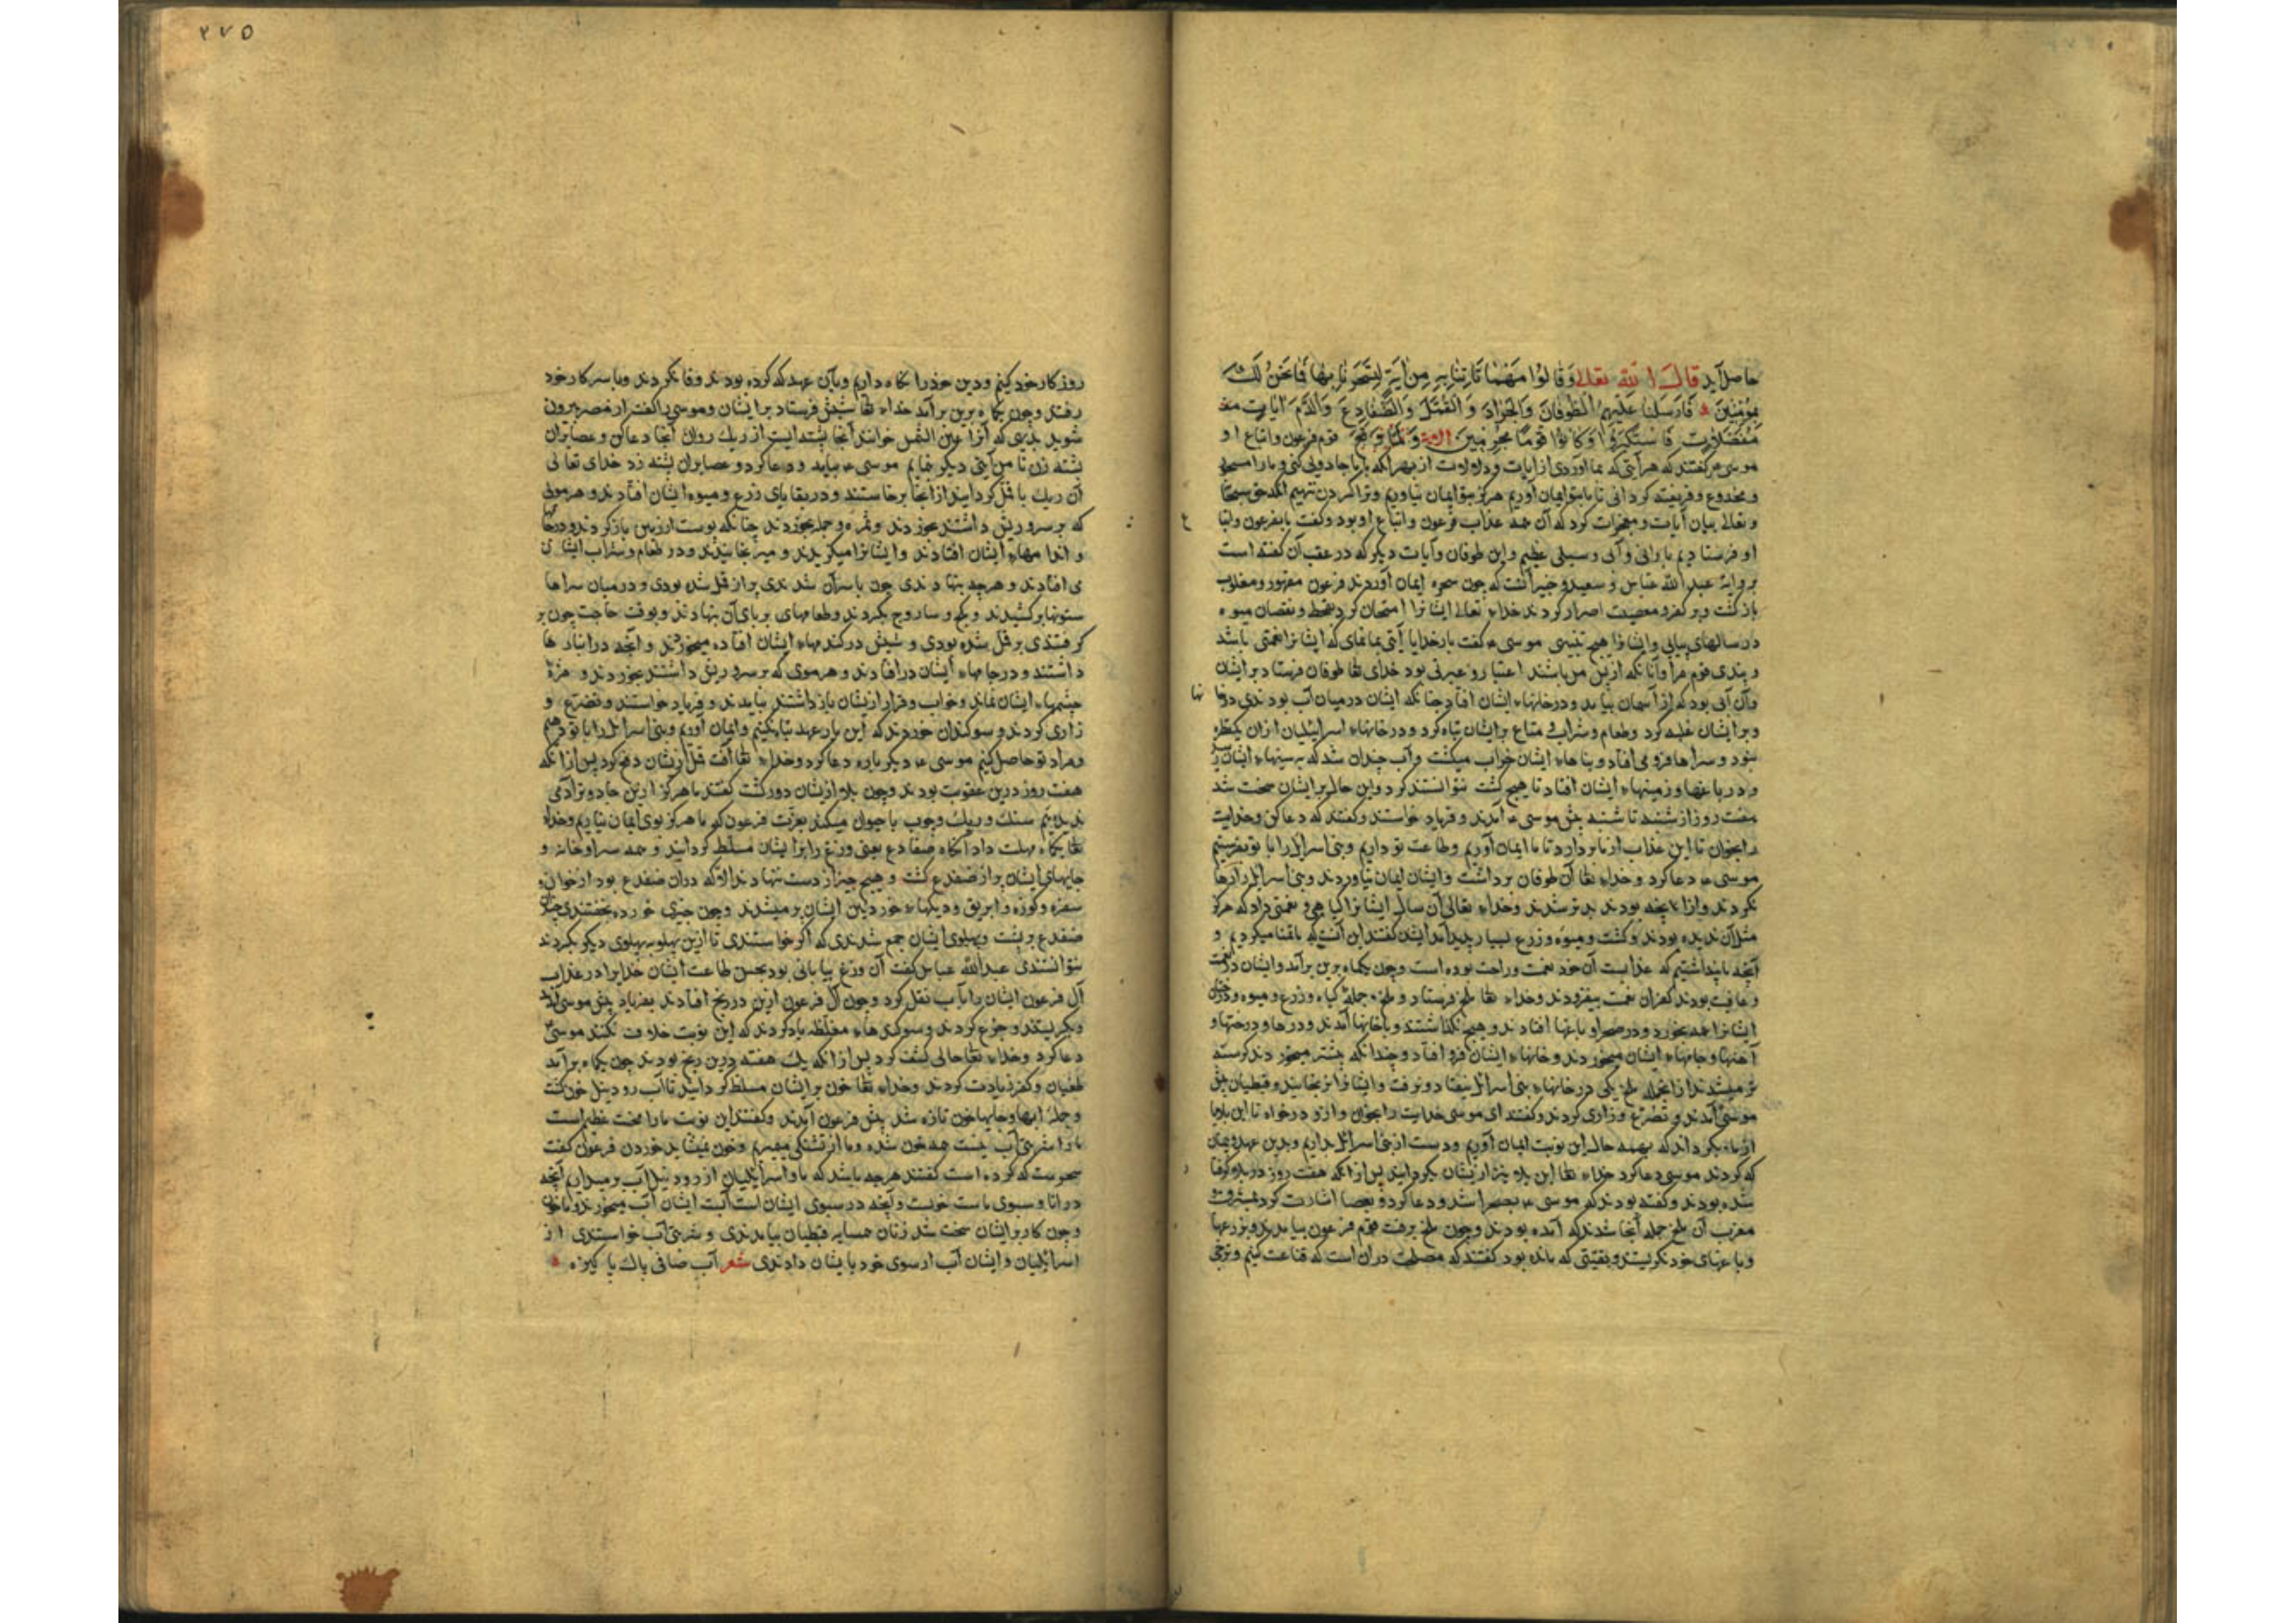 حاصل آید قال الله تعالی وَقَالُوا مَهْمَا تَأْتِنَا بِهِ مِنْ آيَةٍ لِتَسْحَرَنَا بِهَا فَمَا نَحْنُ لَكَ
بِمُؤْمِنِينَ فَأَرْسَلْنَا عَلَيْهِمُ الطُّوفَانَ وَالْجَرَادَ وَالْقُمَّلَ وَالضَّفَادِعَ وَالدَّمَ آيَاتٍ
مُفَصَّلَاتٍ فَاسْتَكْبَرُوا وَكَانُوا قَوْمًا مُجْرِمِينَ قوم فرعون و اتباع او
موسی را گفتند که هر آیتی که بما آوردی از آیات و دلالات از بهر آنکه با ما جادوی کنی و ما را مسحور
و مخدوع و فریفته گردانی تا ما بتو ایمان آوریم هرگز بتو ایمان نیاوریم
و تعالی بیان آیات و معجزات کرد که آن همه عذاب فرعون و اتباع او بود و گفت ما بفرعون
او فرستادیم بارانی و آبی و سیلی عظیم و این طوفان و آیات دیگر که در عقب آن گفته است
بروایة عبد الله عباس و سعید و جبیر آنست که چون سحره ایمان آوردند فرعون مقهور و مغلوب
بازگشت و بر کفر و معصیت اصرار کردند خداء تعالی ایشانرا امتحان کرد بقحط و نقصان میوه
در سالهای بیابی و ایشانرا هیچ تنبیهی موسی ع گفت بار خدایا آیتی بما نمای که ایشانرا نقمتی باشد
و پندی قوم مرا و آنانکه از پس من باشند اعتبار و عبرتی بود خدای تعا طوفان فرستاد بر ایشان
و آن آبی بود که از آسمان بیامد و در خانهاء ایشان افتاد چنانکه ایشان در میان آب بودندی
و بر ایشان غلبه کرد و طعام و شراب و متاع بر ایشان تباه کرد و در خانهاء اسرائیلیان ازان یکقطره
نبود و سراها فرو می افتاد و بناهاء ایشان خراب میگشت و آب چندان شد که بسینهاء ایشان
و در باغها و زمینهاء ایشان افتاد تا هیچ کشت نتوانستند کرد و این حال بر ایشان سخت شد
هفت روز از شنبه تا شنبه پیش موسی ع آمدند و فریاد خواستند و گفتند که دعا کن و خدایت
را بخوان تا این عذاب از ما بردارد تا ما ایمان آوریم و طاعت تو داریم و بنی اسرائیل را با تو بفرستیم
موسی ع دعا کرد و خداء تعا آن طوفان برداشت و ایشان ایمان نیاوردند و بنی اسرائیل را رها
نکردند و ازانچه بودند بدتر شدند و خداء تعالی آن سال ایشانرا گیاهی و نعمتی داد که هرگز
مثل آن ندیده بودند و کشت و میوه و زرع بسیار پدید آمد ایشان گفتند این آنست که ما تمنا میکردیم و
آنچه ما پنداشتیم که عذابست آن خود نعمت و راحت بوده است و چون یکماه برین برآمد و ایشان در نعمت
و عافیت بودند کفران نعمت بیفزودند و خداء تعا ملخ فرستاد و ملخ جملهٔ گیاه و زرع و میوه و درختان
ایشانرا همه بخورد و در صحرا و باغها افتادند و هیچ نگذاشتند و با خانها آمدند و درها و درختها و
آهنها و جامهاء ایشان میخوردند و خانهاء ایشان فرو افتاد و چندانکه بیشتر میخوردند گرسنه
تر میشدند و ازانجمله ملخ یکی در خانهاء بنی اسرائیل نیفتاد و نرفت و ایشانرا نرنجانید و قبطیان پیش
موسی آمدند و تضرع و زاری کردند و گفتند ای موسی خدایت را بخوان و ازو درخواه تا این بلا
از ما بگرداند که بهمه حال این نوبت ایمان آوریم و دست از بنی اسرائیل بداریم و بدین عهد و پیمان
که کردند موسی دعا کرد خداء تعا این بلا نیز از ایشان بگردانید پس از آنکه هفت روز در بلا گرفتار
شده بودند و گفته بودند که موسی ع بصحرا شد و دعا کرد و بعصا اشارت کرد بمشرق و
مغرب آن ملخ جمله آنجا شدند که آمده بودند و چون ملخ برفت قوم فرعون بیامدند و بزرعها
و باغهای خود نگریستند و بقیتی که مانده بود گفتند که مصلحت دران است که قناعت کنیم
۲۷۵
روزگار خود کنیم و دین خود را نگاه داریم و بآن عهد که کرده بودند وفا نکردند و با سر کار خود
رفتند و چون یکماه برین برآمد خداء تعا شپش فرستاد بر ایشان و موسی را گفت از مصر بیرون
شوید بدیهی که آنرا عین الشمس خوانند آنجا پشته ایست از ریک روان آنجا دعا کن و عصا بران
پشته زن تا من آیتی دیگر نمایم موسی ع بیامد و دعا کرد و عصا بران پشته زد خدای تعالی
آن ریک با قمل گردانید از آنجا برخاستند و در بقایای زرع و میوه ایشان افتادند و هر مویی
که بر سر و ریش داشتند بخوردند و مژه و جمله بخوردند چنانکه پوست از زمین باز کردند
و اندامهاء ایشان افتادند و ایشانرا میگزیدند و میرنجانیدند و در طعام و شراب ایشان
می افتادند و هرچه بنهادندی چون باسر آن شدندی پر از قمل شده بودی و در میان سراها
ستونها برکشیدند و بگچ و ساروج بکردند و طعامهای بر بالای آن بنهادند و بوقت حاجت چون بر
گرفتندی پر قمل شده بودی و شپش در گندمهاء ایشان افتاده میخوردند و آنچه در انبارها
داشتند و در جامهاء ایشان درافتادند و هر موی که بر سر و ریش داشتند بخوردند و مژهٔ
چشمهاء ایشان نماند و خواب و قرار از ایشان باز داشتند بیامدند و فریاد خواستند و تضرع و
زاری کردند و سوگندان خوردند که این بار عهد تباه نکنیم و ایمان آوریم و بنی اسرائیل را با تو دهیم
و مراد تو حاصل کنیم موسی ع دیگر باره دعا کرد و خداء تعا آفت قمل از ایشان دفع کرد پس از آنکه
هفت روز درین عقوبت بودند و چون بلا از ایشان دور گشت گفتند ما هرگز ازین جادوتر آدمی
ندیدیم سنک و ریک و چوب با حیوان میکند بعزت فرعون که ما هرگز بوی ایمان نیاریم و خداء
تعا یکماه مهلت داد آنگاه ضفادع یعنی وزغ را بر ایشان مسلط گردانید و همه سرا و خانه و
جایهای ایشان پر از ضفدع گشت و هیچ چیز از دست ننهادند الا که دران ضفدع بود از خوان و
سفره و کوزه و ابریق و دیگهاء خوردنی ایشان پر میشدند و چون چیزی خورده بخفتندی
ضفدع بر پشت و پهلوی ایشان جمع شدندی که اگر خواستندی تا ازین پهلو به پهلوی دیگر بگردند
نتوانستندی عبدالله عباس گفت آن وزغ بیابانی بود بحسن طاعت ایشان خدایرا در عذاب
آل فرعون ایشان را باب نقل کرد و چون آل فرعون ازین در رنج افتادند بفریاد پیش موسی آمدند
و بگریستند و جزع کردند و سوگندهاء مغلظه یاد کردند که این نوبت خلاف نکنند موسی
دعا کرد و خداء تعا حالی کشف کرد پس از آنکه یک هفته درین رنج بودند چون یکماه برآمد
طغیان و کفر زیادت کردند و خداء تعا خون بر ایشان مسلط گردانید تا آب رود نیل خون گشت
و جملهٔ آبها و چاهها خون تازه شد پیش فرعون آمدند و گفتند این نوبت ما را محنت عظیم است
ما را شربتی آب نیست همه خون شده و ما از تشنگی میمیریم و خون نمیشاید خوردن فرعون گفت
سحریست که کرده است گفتند هرچه باشد که ما و اسرائیلیان از رود نیل آب برمیداریم آنچه
در اناء و سبوی ماست خونست و آنچه در سبوی ایشان است آبست ایشان آب میخورند و ما خون
و چون کار بر ایشان سخت شد زنان همسایه قبطیان بیامدندی و شربتی آب خواستندی از
اسرائیلیان و ایشان آب از سبوی خود بایشان دادندی شعر آب صافی پاک پاکیزه